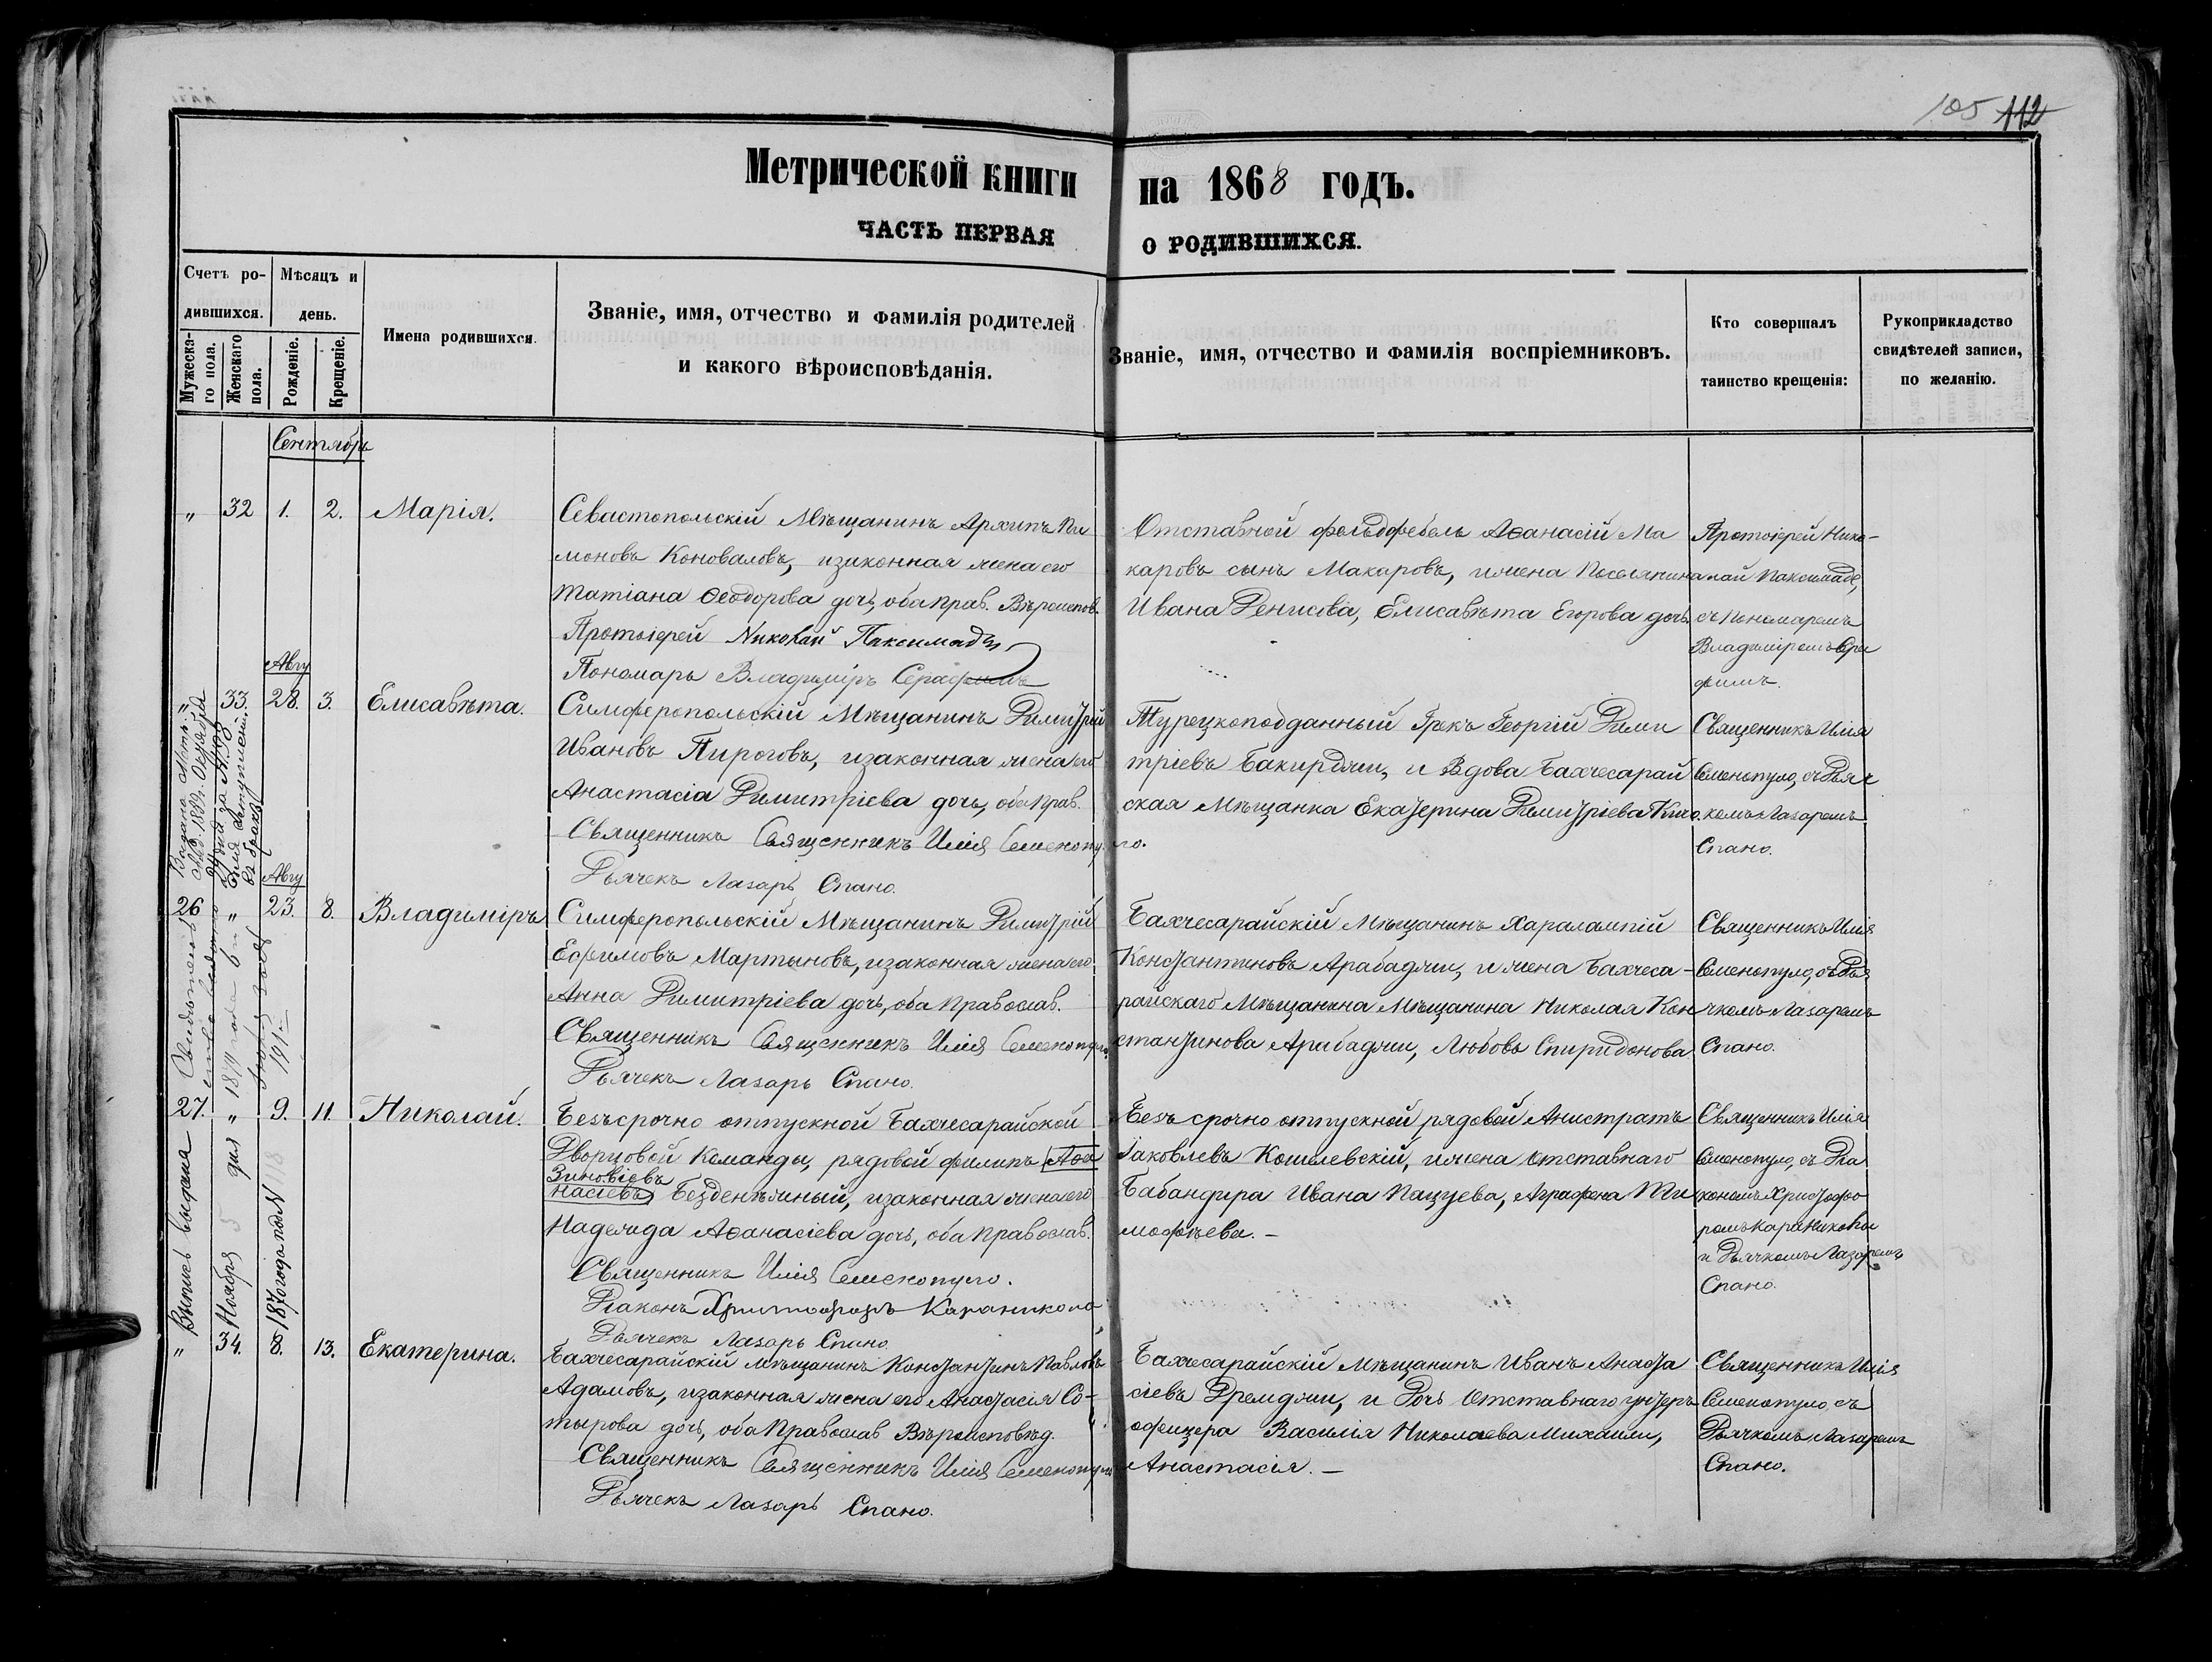 105 112
Метрической книги на 1868 годъ.
ЧАСТЬ ПЕРВАЯ О РОДИВШИХСЯ.
Счетъ ро-
дившихся.
Мужеска-
го пола.
Женскаго
пола.
Мѣсяцъ и
день.
Рожденіе.
Крещеніе.
Имена родившихся.
Званіе, имя, отчество и фамилія родителей
и какого вѣроисповѣданія.
Званіе, имя, отчество и фамилія воспріемниковъ.
Кто совершалъ
таинство крещенія:
Рукоприкладство
свидѣтелей записи,
по желанію.
Сентябрь
" 32 1. 2. Марія.
Севастопольскій Мѣщанинъ Архипъ Пи
моновъ Коноваловъ, изаконная жена его
Татіана Ѳеодорова дочь, оба прав. Вѣроиспов.
Протоіерей Николай Паксимади
Пономарь Владиміръ Серафимъ
Отставной фельдфебель Аѳанасій Ма
каровъ сынъ Макаровъ, ижена Поселянина
Ивана Денисова, Елисавѣта Егорова дочь.
Протоіерей Нико-
лай Паксимаде,
съ Пономаремъ
Владиміромъ Сера
фимъ.
Авгу
" 33. 28. 3. Елисавѣта.
Симферопольскій Мѣщанинъ Димитрій
Ивановъ Пироговъ, изаконная жена его
Анастасіа Димитріева дочь, оба прав.
Священникъ Священникъ Илія Семенопу
Дьячекъ Лазарь Спано.
Турецкоподданный Грекъ Георгій Дими
тріевъ Бакирджи, и Вдова Бахчесарай
ская Мѣщанка Екатерина Димитріева Кичо
ло.
Священникъ Илія
Семенопуло, съ Дьяч
комъ Лазаремъ
Спано.
Авгу
26 " 23. 8. Владиміръ
Симферопольскій Мѣщанинъ Димитрій
Ефимовъ Мартыновъ, изаконная жена его
Анна Димитріева дочь, оба православ.
Священникъ Священникъ Илія Семенопуло.
Дьячекъ Лазарь Спано.
Бахчесарайскій Мѣщанинъ Харалампій
Константиновъ Арабаджи, ижена Бахчеса-
райскаго Мѣщанина Мѣщанина Николая Кон
стантинова Арабаджи, Любовь Спиридонова
Священникъ Илія
Семенопуло, съ Дья
чкомъ Лазаремъ
Спано.
27. " 9. 11. Николай.
Безъсрочно отпускной Бахчесарайской
Дворцовой Команды, рядовой Филипъ Аѳа
Зиновіевъ
насіевъ Безденежный, изаконная жена его
Надежда Аѳанасіева дочь, оба православ.
Священникъ Илія Семенопуло.
Діаконъ Христофоръ Караникола
Дьячекъ Лазарь Спано.
Безъ срочно отпускной рядовой Анистратъ
Іаковлевъ Кошелевскій, ижена отставнаго
Ивана Пацуева, Аграфена Ти
мофѣева. -
Священникъ Илія
Семенопуло, съ Діа
кономъ Христофо
ромъ Караникола
и Дьячкомъ Лазаремъ
Спано.
" 34. 8. 13. Екатерина.
Бахчесарайскій мѣщанинъ Константинъ Павловъ
Адамовъ, изаконная жена его Анастасія Со-
тырова дочь, оба Православ Вѣроисповѣд.
Священникъ Священникъ Илія Семенопуло
Дьячекъ Лазарь Спано.
Бахчесарайскій Мѣщанинъ Иванъ Анаста
сіевъ Дремджи, и Дочь Отставнаго унтеръ
офицера Василія Николаева Михаили,
Анастасія. -
Священникъ Илія
Семенопуло съ
Дьячкомъ Лазаремъ
Спано.
Выпись выдана
Ноября 5 дня
1870 года по № 118